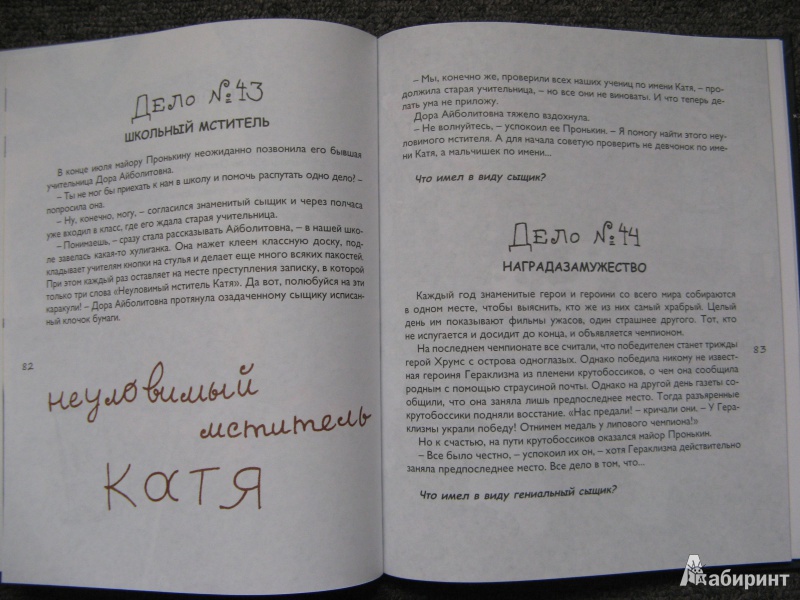 Дело №43
ШКОЛЬНЫЙ МСТИТЕЛЬ
В конце июля майору Пронькину неожиданно позвонила его бывшая
учительница Дора Айболитовна.
– Ты не мог бы приехать к нам в школу и помочь распутать одно дело? –
попросила она.
– Ну, конечно, могу, – согласился знаменитый сыщик и через полчаса
уже входил в класс, где его ждала старая учительница.
– Понимаешь, – сразу стала рассказывать Айболитовна, – в нашей шко-
ле завелась какая-то хулиганка. Она мажет клеем классную доску, под-
кладывает учителям кнопки на стулья и делает еще много всяких пакостей.
При этом каждый раз оставляет на месте преступления записку, в которой
только три слова «Неуловимый мститель Катя». Да вот, полюбуйся на эти
каракули! – Дора Айболитовна протянула озадаченному сыщику исписан-
ный клочок бумаги.
82
неуловимый
мститель
КАТЯ
– Мы, конечно же, проверили всех наших учениц по имени Катя, – про-
должила старая учительница, – но все они не виноваты. И что теперь де-
лать ума не приложу.
Дора Айболитовна тяжело вздохнула.
– Не волнуйтесь, – успокоил ее Пронькин. – Я помогу найти этого неу-
ловимого мстителя. А для начала советую проверить не девчонок по име-
ни Катя, а мальчишек по имени...
Что имел в виду сыщик?
Дело №44
НАГРАДАЗАМУЖЕСТВО
Каждый год знаменитые герои и героини со всего мира собираются
в одном месте, чтобы выяснить, кто же из них самый храбрый. Целый
день им показывают фильмы ужасов, один страшнее другого. Тот, кто
не испугается и досидит до конца, и объявляется чемпионом.
На последнем чемпионате все считали, что победителем станет трижды
герой Хрумс с острова одноглазых. Однако победила никому не извест-
ная героиня Гераклизма из племени крутобоссиков, о чем она сообщила
родным с помощью страусиной почты. Однако на другой день газеты со-
общили, что она заняла лишь предпоследнее место. Тогда разъяренные
крутобоссики подняли восстание. «Нас предали! – кричали они. – У Гера-
клизмы украли победу! Отнимем медаль у липового чемпиона!»
Но к счастью, на пути крутобоссиков оказался майор Пронькин.
– Все было честно, – успокоил их он, – хотя Гераклизма действительно
заняла предпоследнее место. Все дело в том, что...
83
Что имел в виду гениальный сыщик?
Лабиринт